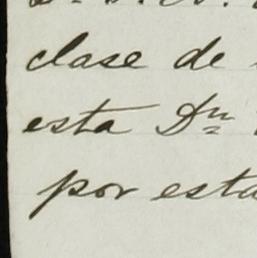 clase de
esta Dn
por esta